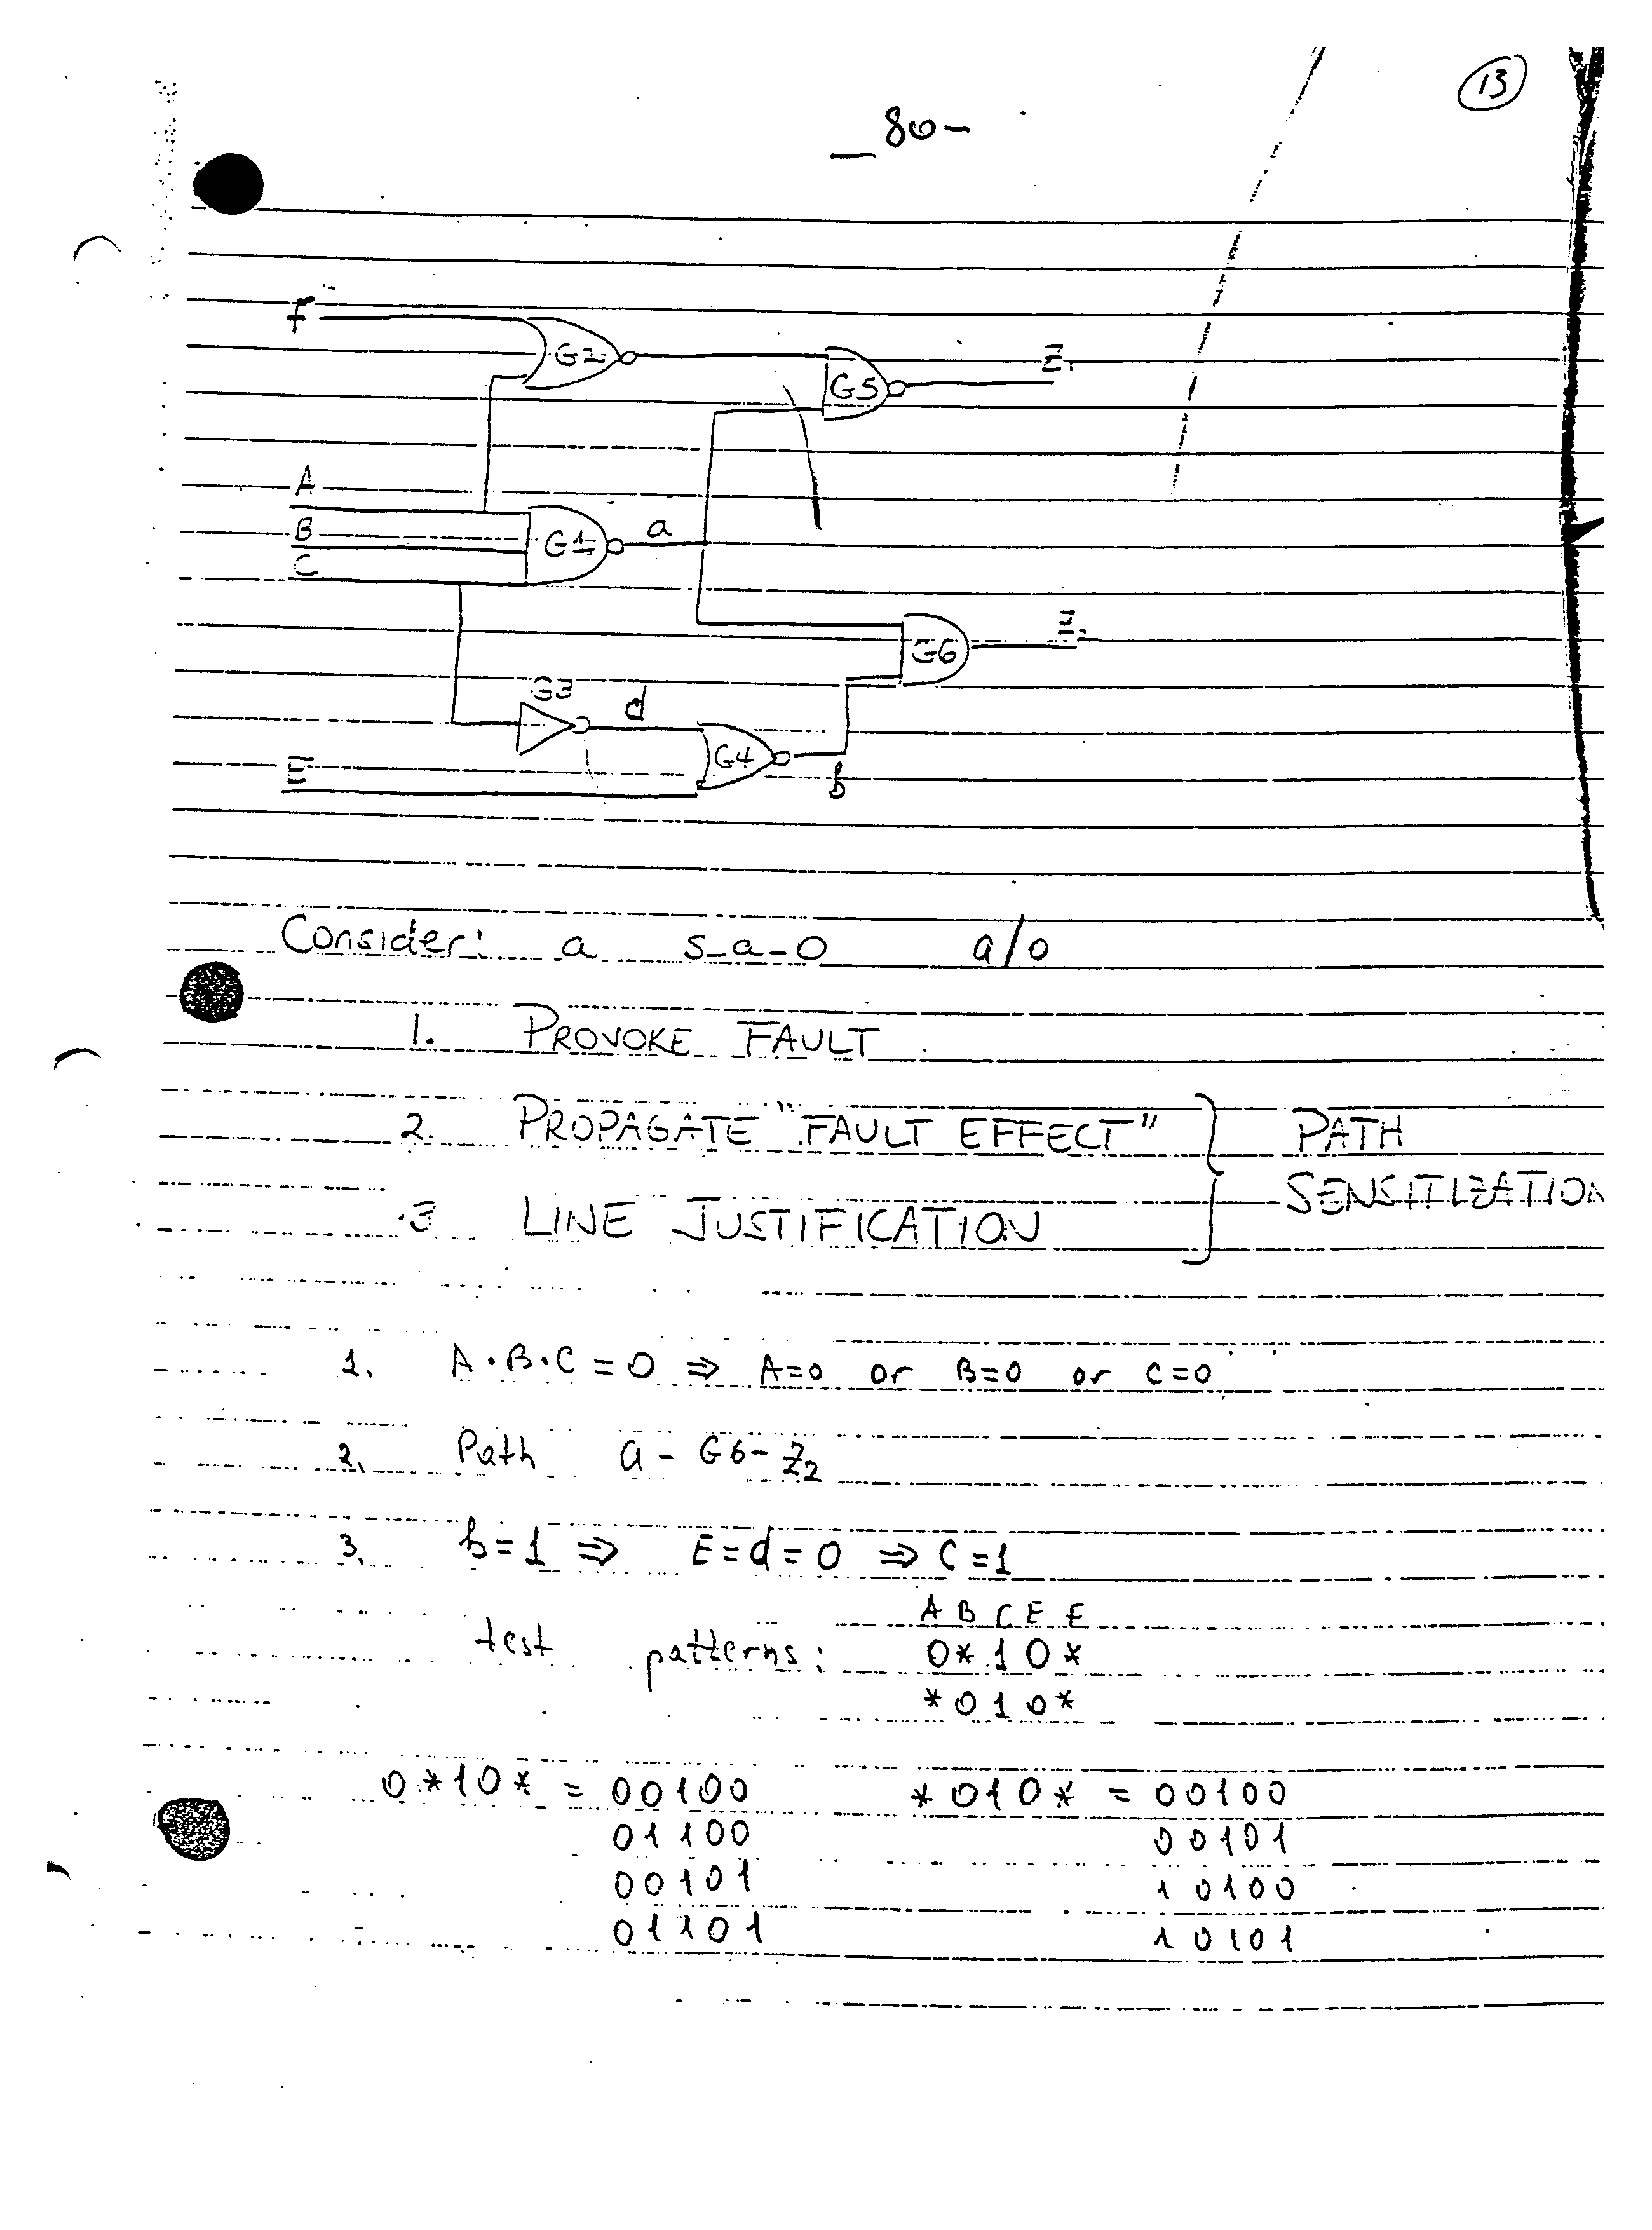 13
-80-
F
G2
G5
Z1
A
B
G1
a
C
G6
G3
d
G4
E
b
Consider: a s-a-0 a/0
1. PROVOKE FAULT
2. PROPAGATE "FAULT EFFECT" PATH
SENSITIZATION
3 LINE JUSTIFICATION
1. A·B·C=0 ⇒ A=0 or B=0 or C=0
2. Path a - G6 - Z2
3. b=1 ⇒ E=d=0 ⇒ C=1
A B C E E
test patterns: 0*10*
*010*
0*10* = 00100 *010* = 00100
01100 00101
00101 10100
01101 10101